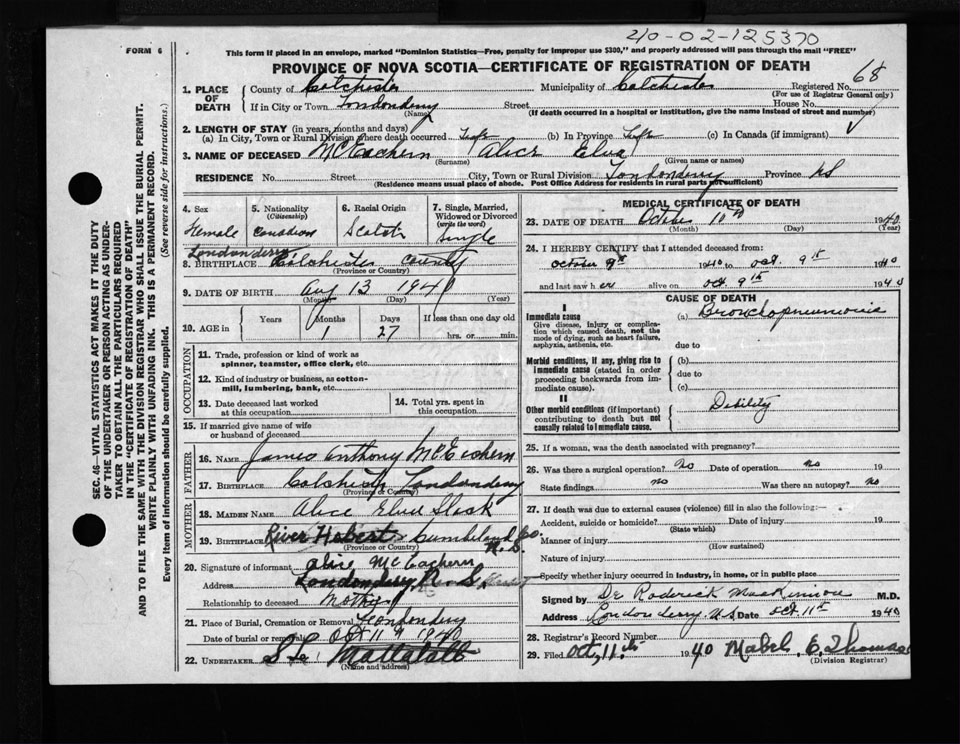 40-02-125370
FORM 6
This form if placed in an envelope, marked "Dominion Statistics—Free, penalty for improper use $300," and properly addressed will pass through the mail "FREE"
PROVINCE OF NOVA SCOTIA—CERTIFICATE OF REGISTRATION OF DEATH
SEC. 46—VITAL STATISTICS ACT MAKES IT THE DUTY
OF THE UNDERTAKER OR PERSON ACTING AS UNDER-
TAKER TO OBTAIN ALL THE PARTICULARS REQUIRED
IN THE "CERTIFICATE OF REGISTRATION OF DEATH"
AND TO FILE THE SAME WITH THE DIVISION REGISTRAR WHO SHALL ISSUE THE BURIAL PERMIT.
WRITE PLAINLY WITH UNFADING INK. THIS IS A PERMANENT RECORD.
Every item of information should be carefully supplied. (See reverse side for instructions.)
1. PLACE OF DEATH
County of Colchester Municipality of Colchester Registered No. 68
(For use of Registrar General only)
If in City or Town Londonderry Street House No.
(Name) (If death occurred in a hospital or institution, give the name instead of street and number)
2. LENGTH OF STAY (in years, months and days)
(a) In City, Town or Rural Division where death occurred Life (b) In Province Life (c) In Canada (if immigrant)
3. NAME OF DECEASED McEachern Alice Elva
(Surname) (Given name or names)
RESIDENCE No. Street City, Town or Rural Division Londonderry Province NS
(Residence means usual place of abode. Post Office Address for residents in rural parts not sufficient)
4. Sex Female
5. Nationality (Citizenship) Canadian
6. Racial Origin Scotch
7. Single, Married, Widowed or Divorced (write the word) Single
Londonderry
8. BIRTHPLACE Colchester County
(Province or Country)
9. DATE OF BIRTH Aug 13 1940
(Month) (Day) (Year)
10. AGE in Years Months 1 Days 27 If less than one day old hrs. or min.
OCCUPATION
11. Trade, profession or kind of work as spinner, teamster, office clerk, etc.
12. Kind of industry or business, as cotton-mill, lumbering, bank, etc.
13. Date deceased last worked at this occupation
14. Total yrs. spent in this occupation
15. If married give name of wife or husband of deceased
FATHER
16. NAME James Anthony McEachern
17. BIRTHPLACE Colchester Londonderry
(Province or Country)
MOTHER
18. MAIDEN NAME Alice Elva Slack
19. BIRTHPLACE River Hebert Cumberland Co. N.S.
(Province or Country)
20. Signature of informant Alice McEachern
Address Londonderry N.S.
Relationship to deceased Mother
21. Place of Burial, Cremation or Removal Londonderry
Date of burial or removal Oct 11 1940
22. UNDERTAKER
(Name and address)
MEDICAL CERTIFICATE OF DEATH
23. DATE OF DEATH October 10th 1940
(Month) (Day) (Year)
24. I HEREBY CERTIFY that I attended deceased from:
October 9th 1940 to Oct. 9th 1940
and last saw her alive on Oct. 9th 1940
CAUSE OF DEATH
I
Immediate cause
Give disease, injury or complication which caused death, not the mode of dying, such as heart failure, asphyxia, asthenia, etc.
(a) Bronchopneumonia
due to
Morbid conditions, if any, giving rise to immediate cause (stated in order proceeding backwards from immediate cause).
(b)
due to
(c)
II
Other morbid conditions (if important) contributing to death but not causally related to immediate cause.
Debility
25. If a woman, was the death associated with pregnancy?
26. Was there a surgical operation? No Date of operation no 19
State findings no Was there an autopsy? no
27. If death was due to external causes (violence) fill in also the following:—
Accident, suicide or homicide? Date of injury 19
(State which)
Manner of injury
(How sustained)
Nature of injury
Specify whether injury occurred in industry, in home, or in public place
Signed by Dr Roderick MacKinnon M.D.
Address Londonderry, N.S. Date Oct. 11th 1940
28. Registrar's Record Number
29. Filed Oct, 11th 1940 Mabel E. Thomas
(Division Registrar)